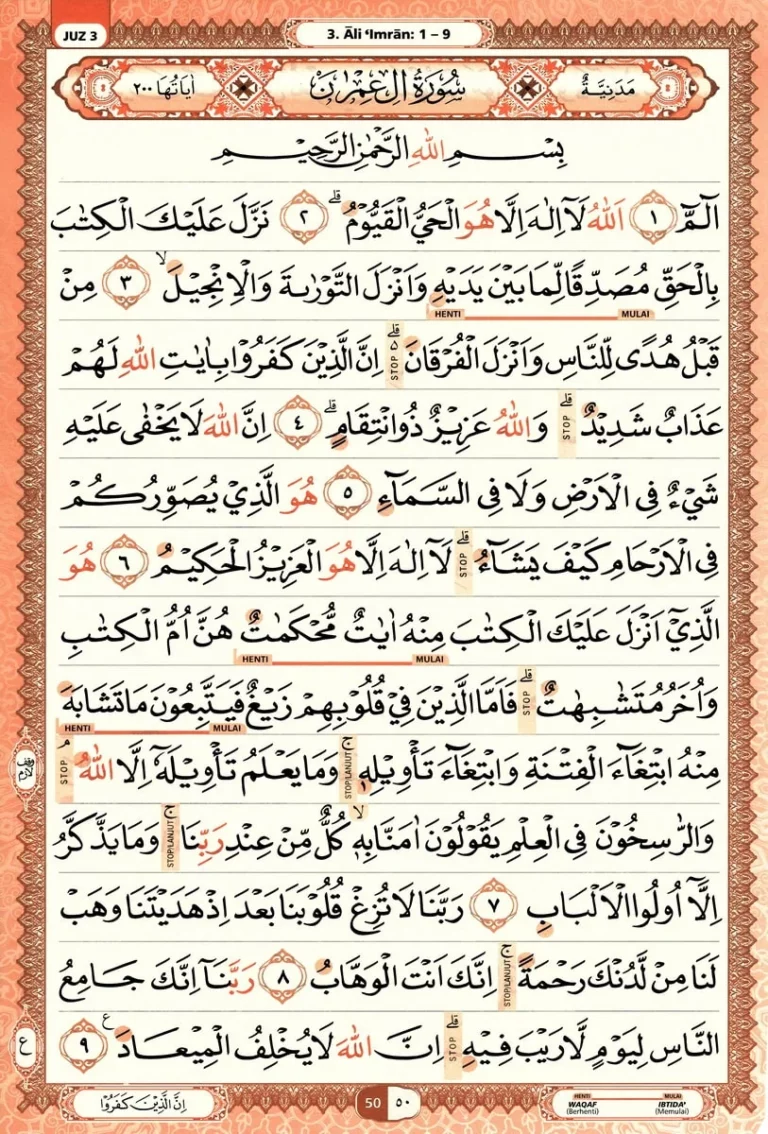 JUZ 3
3. Āli ‘Imrān: 1 – 9
مَدَنِيَّةٌ سُوْرَةُ اٰلِ عِمْرٰنَ اٰيَاتُهَا ٢٠٠
بِسْمِ اللّٰهِ الرَّحْمٰنِ الرَّحِيْمِ
الۤمّۤ ۝١ اَللّٰهُ لَآ اِلٰهَ اِلَّا هُوَ الْحَيُّ الْقَيُّوْمُۗ ۝٢ نَزَّلَ عَلَيْكَ الْكِتٰبَ
بِالْحَقِّ مُصَدِّقًا لِّمَا بَيْنَ يَدَيْهِ وَاَنْزَلَ التَّوْرٰىةَ وَالْاِنْجِيْلَۙ ۝٣ مِنْ
HENTI MULAI
قَبْلُ هُدًى لِّلنَّاسِ وَاَنْزَلَ الْفُرْقَانَ ەۗ STOP اِنَّ الَّذِيْنَ كَفَرُوْا بِاٰيٰتِ اللّٰهِ لَهُمْ
عَذَابٌ شَدِيْدٌۗ STOP وَاللّٰهُ عَزِيْزٌ ذُو انْتِقَامٍۗ ۝٤ اِنَّ اللّٰهَ لَا يَخْفٰى عَلَيْهِ
شَيْءٌ فِى الْاَرْضِ وَلَا فِى السَّمَاۤءِ ۝٥ هُوَ الَّذِيْ يُصَوِّرُكُمْ
فِى الْاَرْحَامِ كَيْفَ يَشَاۤءُۗ STOP لَآ اِلٰهَ اِلَّا هُوَ الْعَزِيْزُ الْحَكِيْمُ ۝٦ هُوَ
الَّذِيْٓ اَنْزَلَ عَلَيْكَ الْكِتٰبَ مِنْهُ اٰيٰتٌ مُّحْكَمٰتٌ هُنَّ اُمُّ الْكِتٰبِ
HENTI MULAI
وَاُخَرُ مُتَشٰبِهٰتٌۗ STOP فَاَمَّا الَّذِيْنَ فِيْ قُلُوْبِهِمْ زَيْغٌ فَيَتَّبِعُوْنَ مَا تَشَابَهَ
HENTI MULAI
مِنْهُ ابْتِغَاۤءَ الْفِتْنَةِ وَابْتِغَاۤءَ تَأْوِيْلِهٖۚ STOP/LANJUT وَمَا يَعْلَمُ تَأْوِيْلَهٗٓ اِلَّا اللّٰهُۘ STOP
وقف لازم
وَالرّٰسِخُوْنَ فِى الْعِلْمِ يَقُوْلُوْنَ اٰمَنَّا بِهٖۙ كُلٌّ مِّنْ عِنْدِ رَبِّنَاۚ STOP/LANJUT وَمَا يَذَّكَّرُ
اِلَّآ اُولُوا الْاَلْبَابِ ۝٧ رَبَّنَا لَا تُزِغْ قُلُوْبَنَا بَعْدَ اِذْ هَدَيْتَنَا وَهَبْ
لَنَا مِنْ لَّدُنْكَ رَحْمَةًۚ STOP/LANJUT اِنَّكَ اَنْتَ الْوَهَّابُ ۝٨ رَبَّنَآ اِنَّكَ جَامِعُ
النَّاسِ لِيَوْمٍ لَّا رَيْبَ فِيْهِۗ STOP اِنَّ اللّٰهَ لَا يُخْلِفُ الْمِيْعَادَ ࣖ ۝٩
ع
اِنَّ الَّذِيْنَ كَفَرُوْا
50 ٥٠
HENTI MULAI
WAQAF IBTIDA'
(Berhenti) (Memulai)